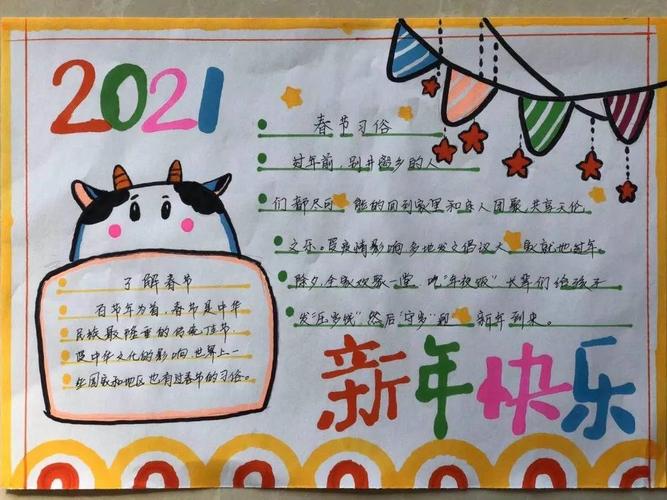 2021
春节习俗
过年前,别井离乡的人
们都尽可能的回到家里和亲人团聚,共享天伦
之乐。受疫情影响,多地发文倡议大家就地过年。
除夕,全家欢聚一堂,吃"年夜饭"长辈们给孩子
发"压岁钱"然后"守岁"到新年到来。
了解春节
百节年为首,春节是中华
民族最隆重的传统佳节
受中华文化的影响,世界上一
些国家和地区也有过春节的习俗。
新年快乐